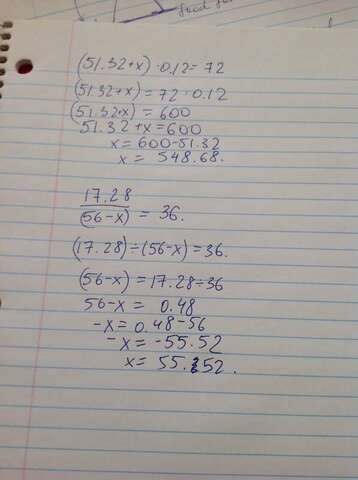 (51.32+x) · 0.12 = 72
(51.32+x) = 72 ÷ 0.12
(51.32+x) = 600
51.32 + x = 600
x = 600 - 51.32
x = 548.68.
17.28
(56-x) = 36.
(17.28) ÷ (56-x) = 36.
(56-x) = 17.28 ÷ 36
56-x = 0.48
-x = 0.48 - 56
-x = -55.52
x = 55.52.